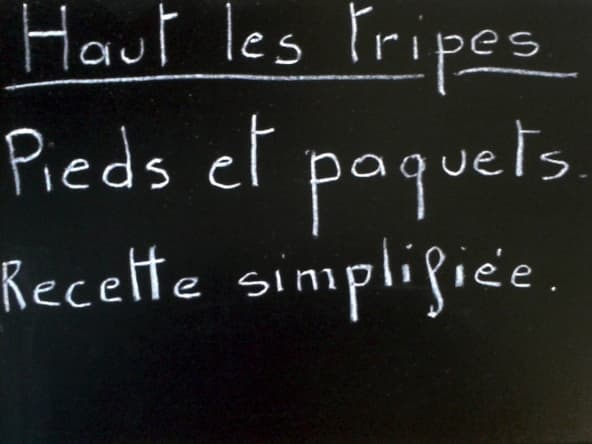 Haut les Tripes
Pieds et paquets.
Recette simplifiée.